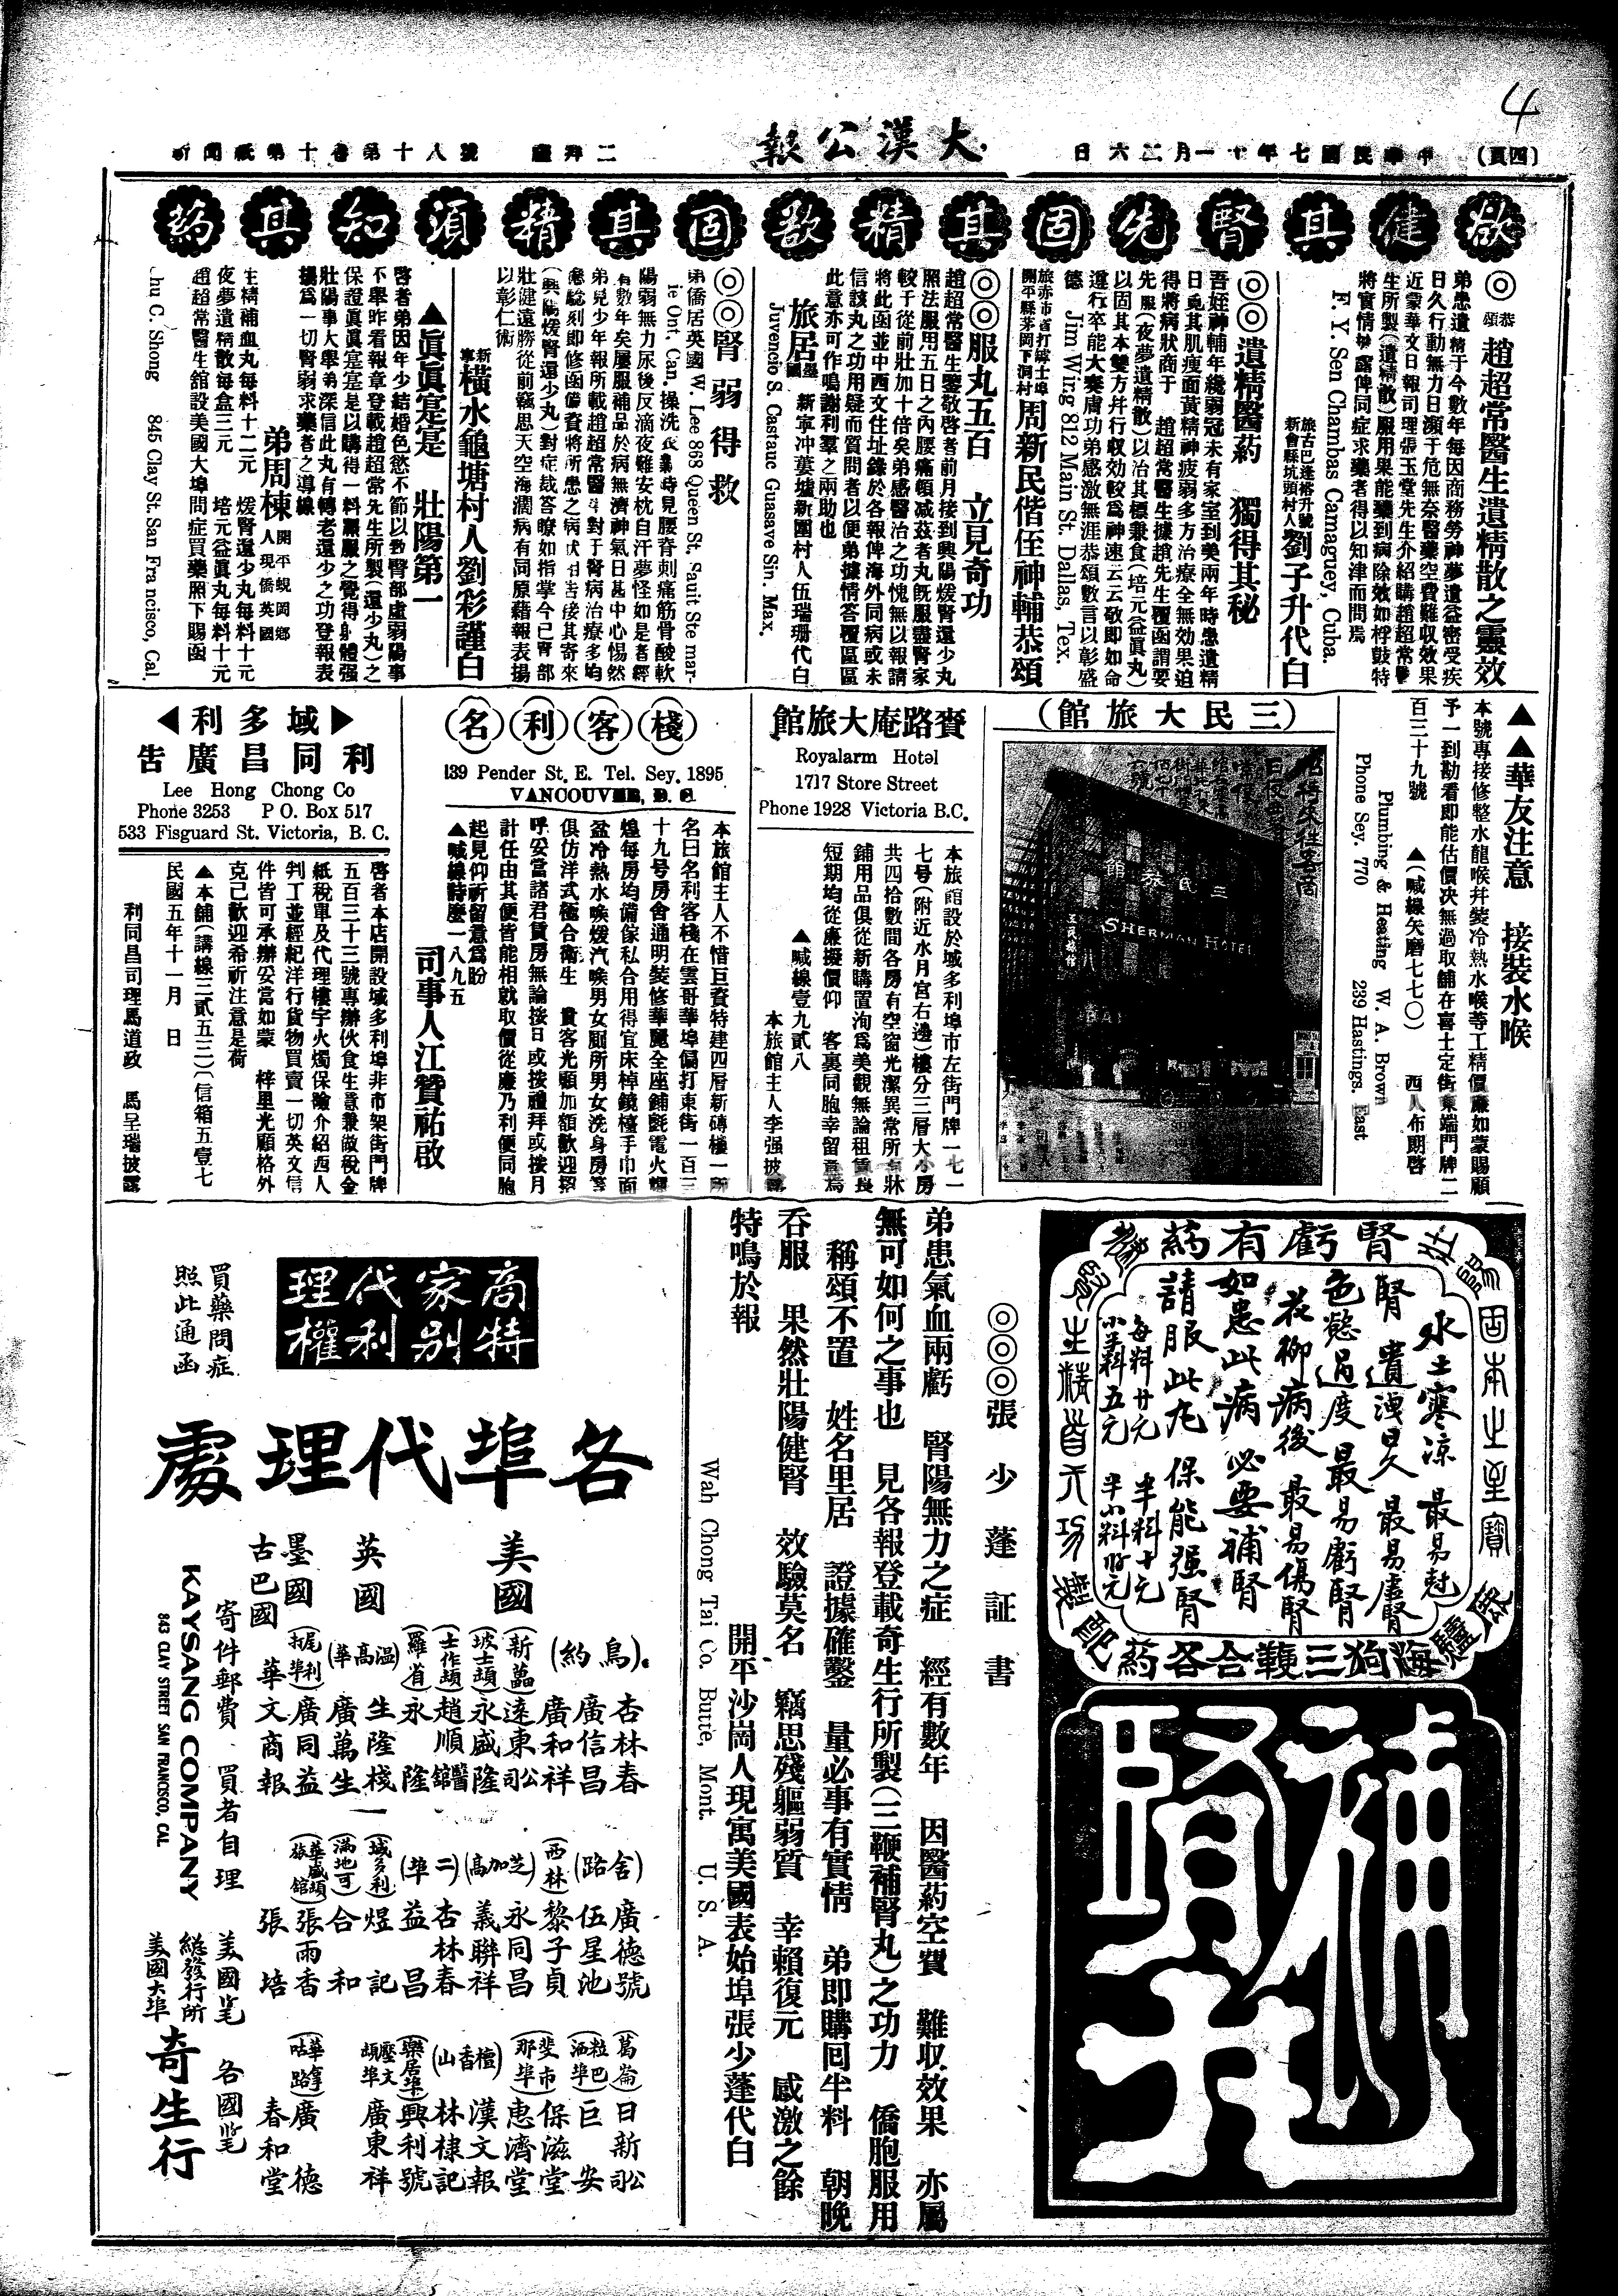 4
(四頁)
中華民國七年十一月二六日
大漢公報
禮拜二
新聞紙第十卷第十八號
欲健其腎先固其精欲固其精須知其药
◎恭頌 趙超常醫生遺精散之靈效
弟患遺精于今數年每因商務勞神夢遺益密受疾
日久行動無力日瀕于危無奈醫藥空費難収效果
近蒙華文日報司理張玉堂先生介紹購趙超常醫
生所製(遺精散)服用果能藥到病除效如桴鼓特
將實情 露俾同症求藥者得以知津而問焉
旅古巴逢裕升號
新會縣坑頭村人劉子升代白
F. Y. Sen Chambas Camaguey, Cuba.
◎◎遺精醫葯 獨得其秘
吾姪神輔年纔弱冠未有家室到美兩年時患遺精
日覓其肌瘦面黃精神疲弱多方治療全無効果迫
得將病狀商于 趙超常醫生據趙先生覆函謂要
先服(夜夢遺精散)以治其標兼食(培元益眞丸)
以固其本雙方幷行収効較爲神速云云敬即如命
遵行卒能大奏膚功弟感激無涯恭頌數言以彰盛
德 Jim Wing 812 Main St. Dallas, Tex.
開平縣茅岡下洞村周新民偕侄神輔恭頌
◎◎服丸五百 立見奇功
趙超常醫生鑒敬啓者前月接到興陽煖腎還少丸
照法服用五日之內腰痛頓减茲者丸旣服盡腎家
較于從前壯加十倍矣弟感醫治之功愧無以報請
將此函並中西文住址錄於各報俾海外同病或未
信該丸之功用疑而質問者以便弟據情答覆區區
此意亦可作鳴謝利羣之兩助也
旅居墨國 新寧冲蔞墟新圍村人伍瑞珊代白
Juvencio S. Castauc Guasave Sin. Max.
◎◎腎弱得救
弟僑居英國 W. Lee 868 Queen St. Sauit Ste mar-
ie Ont. Can. 操洗衣業時見腰脊刺痛筋骨酸軟
陽弱無力尿後反滴夜難安枕自汗夢怪如是者經
有數年矣屢服補品於病無濟神氣日甚中心惕然
弟見少年報所載趙超常醫生對于腎病治療多均
應騐刻即修函備資將所患之病狀相告接其寄來
(興陽煖腎還少丸)對症裁答瞭如指掌今已腎部
壯健遠勝從前竊思天空海濶病有同原藉報表揚
以彰仁術
新寧橫水龜塘村人劉彩謹白
▲眞眞寔是 壯陽第一
啓者弟因年少結婚色慾不節以致腎部虛弱陽事
不舉昨看報章登載趙超常先生所製(還少丸)之
保證眞眞寔寔是以購得一料繭服之覺得身體强
壯陽事大舉弟深信此丸有轉老還少之功登報表
揚爲一切腎弱求藥者之導線
弟周棟 開平蜆岡鄉人現僑英國
生精補血丸每料十二元 煖腎還少丸每料十元
夜夢遺精散每盒三元 培元益眞丸每料十元
趙超常醫生舘設美國大埠問症買藥照下賜函
Chu C. Shong 845 Clay St. San Francisco, Cal.
▲▲華友注意 接裝水喉
本號專接修整水龍喉幷裝冷熱水喉等工精價廉如蒙賜顧
予一到勘看即能估價决無過取舖在喜士定街東端門牌二
百三十九號 ▲(喊線矢磨七七〇) 西人布朗啓
Plumbing & Heating W. A. Brown
Phone Sey. 770 239 Hastings. East
(三民大旅館)
招待來往客商
SHERMAN HOTEL
BAR
賚路庵大旅館
Royalarm Hotel
1717 Store Street
Phone 1928 Victoria B.C.
本旅館設於域多利埠市左街門牌一七一
七號(附近水月宮右邊)樓分三層大小房
共四拾數間各房有空窗光潔異常所有牀
鋪用品俱從新購置洵爲美觀無論租賃長
短期均從廉擬價仰 客裏同胞幸留意焉
▲喊線壹九貳八
本旅館主人李强披露
名利客棧
139 Pender St. E. Tel. Sey. 1895
VANCOUVER, B. C.
本旅館主人不惜巨資特建四層新磚樓一所
名曰名利客棧在雲哥華埠偏打東街一百三
十九号房舍通明裝修華麗全座鋪氈電火輝
煌每房均備傢私合用得宜床棹鏡檯手巾面
盆冷熱水喉煖汽喉男女厠所男女洗身房等
俱仿洋式極合衛生 貴客光顧加額歡迎招
呼妥當諸君賃房無論按日或按禮拜或按月
計任由其便皆能相就取價從廉乃利便同胞
起見仰祈留意爲盼
▲喊線詩麽一八九五
司事人江贊祐啟
▶域多利◀
利同昌廣告
Lee Hong Chong Co
Phone 3253 P O. Box 517
533 Fisguard St. Victoria, B. C.
啓者本店開設域多利埠非市架街門牌
五百三十三號專辦伙食生意兼做稅金
紙稅單及代理樓宇火燭保險介紹西人
判工並經紀洋行貨物買賣一切英文信
件皆可承辦妥當如蒙 梓里光顧格外
克己歡迎希祈注意是荷
▲本舖(講線三貳五三)(信箱五壹七
民國五年十一月 日
利同昌司理馬道政 馬呈瑞披露
腎虧有葯
壯陽固本之至寶
腎水土寒凉 最易尅
腎遺洩日久 最易虛腎
色慾過度 最易虧腎
花柳病後 最易傷腎
如患此病 必要補腎
請服此丸 保能强腎
每料廿元 半料十元
小半料五元
海狗三鞭合各葯
補腎丸
◎◎◎張少蓬証書
弟患氣血兩虧 腎陽無力之症 經有數年 因醫葯空費 難収效果 亦屬
無可如何之事也 見各報登載奇生行所製(三鞭補腎丸)之功力 僑胞服用
稱頌不置 姓名里居 證據確鑿 量必事有實情 弟即購囘半料 朝晚
吞服 果然壯陽健腎 效驗莫名 竊思殘軀弱質 幸賴復元 感激之餘
特鳴於報
開平沙崗人現寓美國表始埠張少蓬代白
Wah Chong Tai Co. Butte, Mont. U. S. A.
商家代理
特别利權
買藥問症
照此通函
各埠代理處
美國
(鳥約) 杏林春
廣信昌
廣和祥
(新藟) 遠東公司
(坡士頓) 永盛隆
(士作頓) 趙順醫館
(羅省) 永隆
英國
(温高華) 生隆棧
廣萬生
墨國
廣同益
古巴國
華文商報
(舍路) 廣德號
伍星池
(西林) 黎子貞
(芝加高) 永同昌
義聯祥
(二埠) 杏林春
益昌
(域多利) 煜記
(滿地可) 合和
(華盛頓旅館) 張雨香
張培
(葛崙) 日新公司
巨安
(斐市那埠) 保滋堂
惠濟堂
(檀香山) 漢文報
林棣記
(樂居埠) 興利號
(壓文頓埠) 廣東祥
廣德
春和堂
寄件郵費 買者自理
KAYSANG COMPANY
843 CLAY STREET SAN FRANCISCO, CAL
總發行所
美國大埠
奇生行